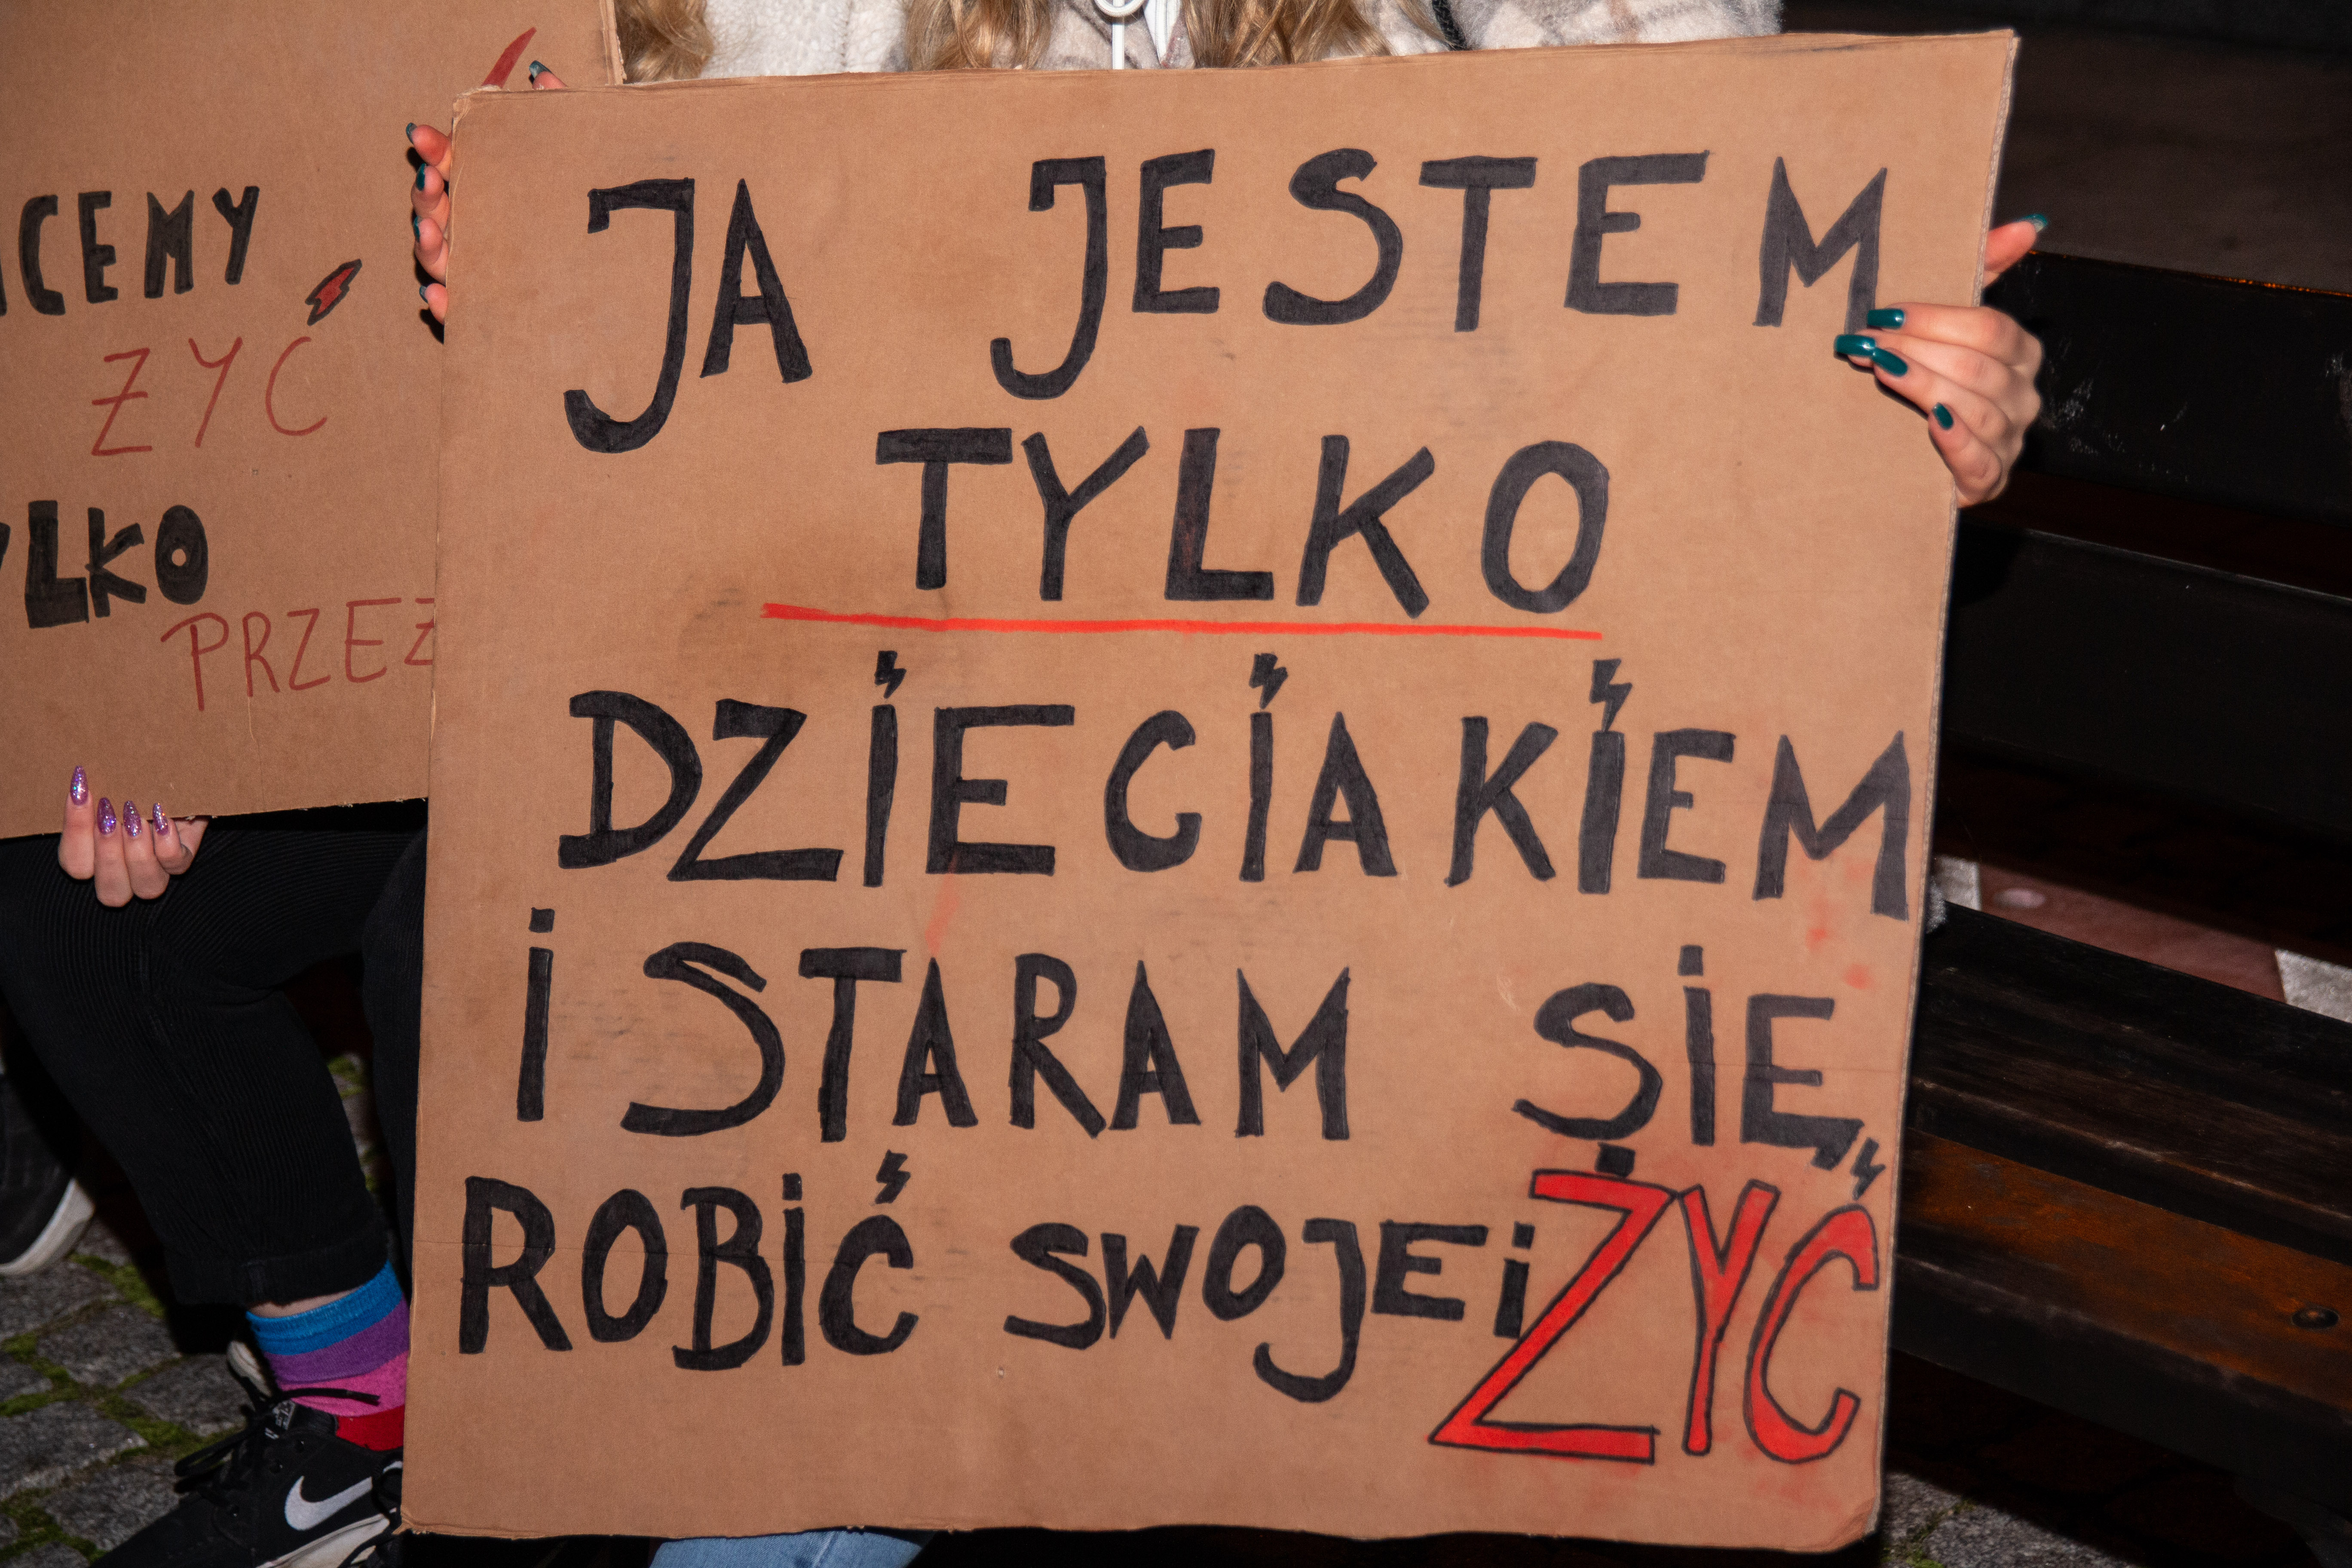 CEMY
ŻYĆ
YLKO
PRZEZ
JA JESTEM
TYLKO
DZIECIAKIEM
I STARAM SIĘ
ROBIĆ SWOJE i ŻYĆ